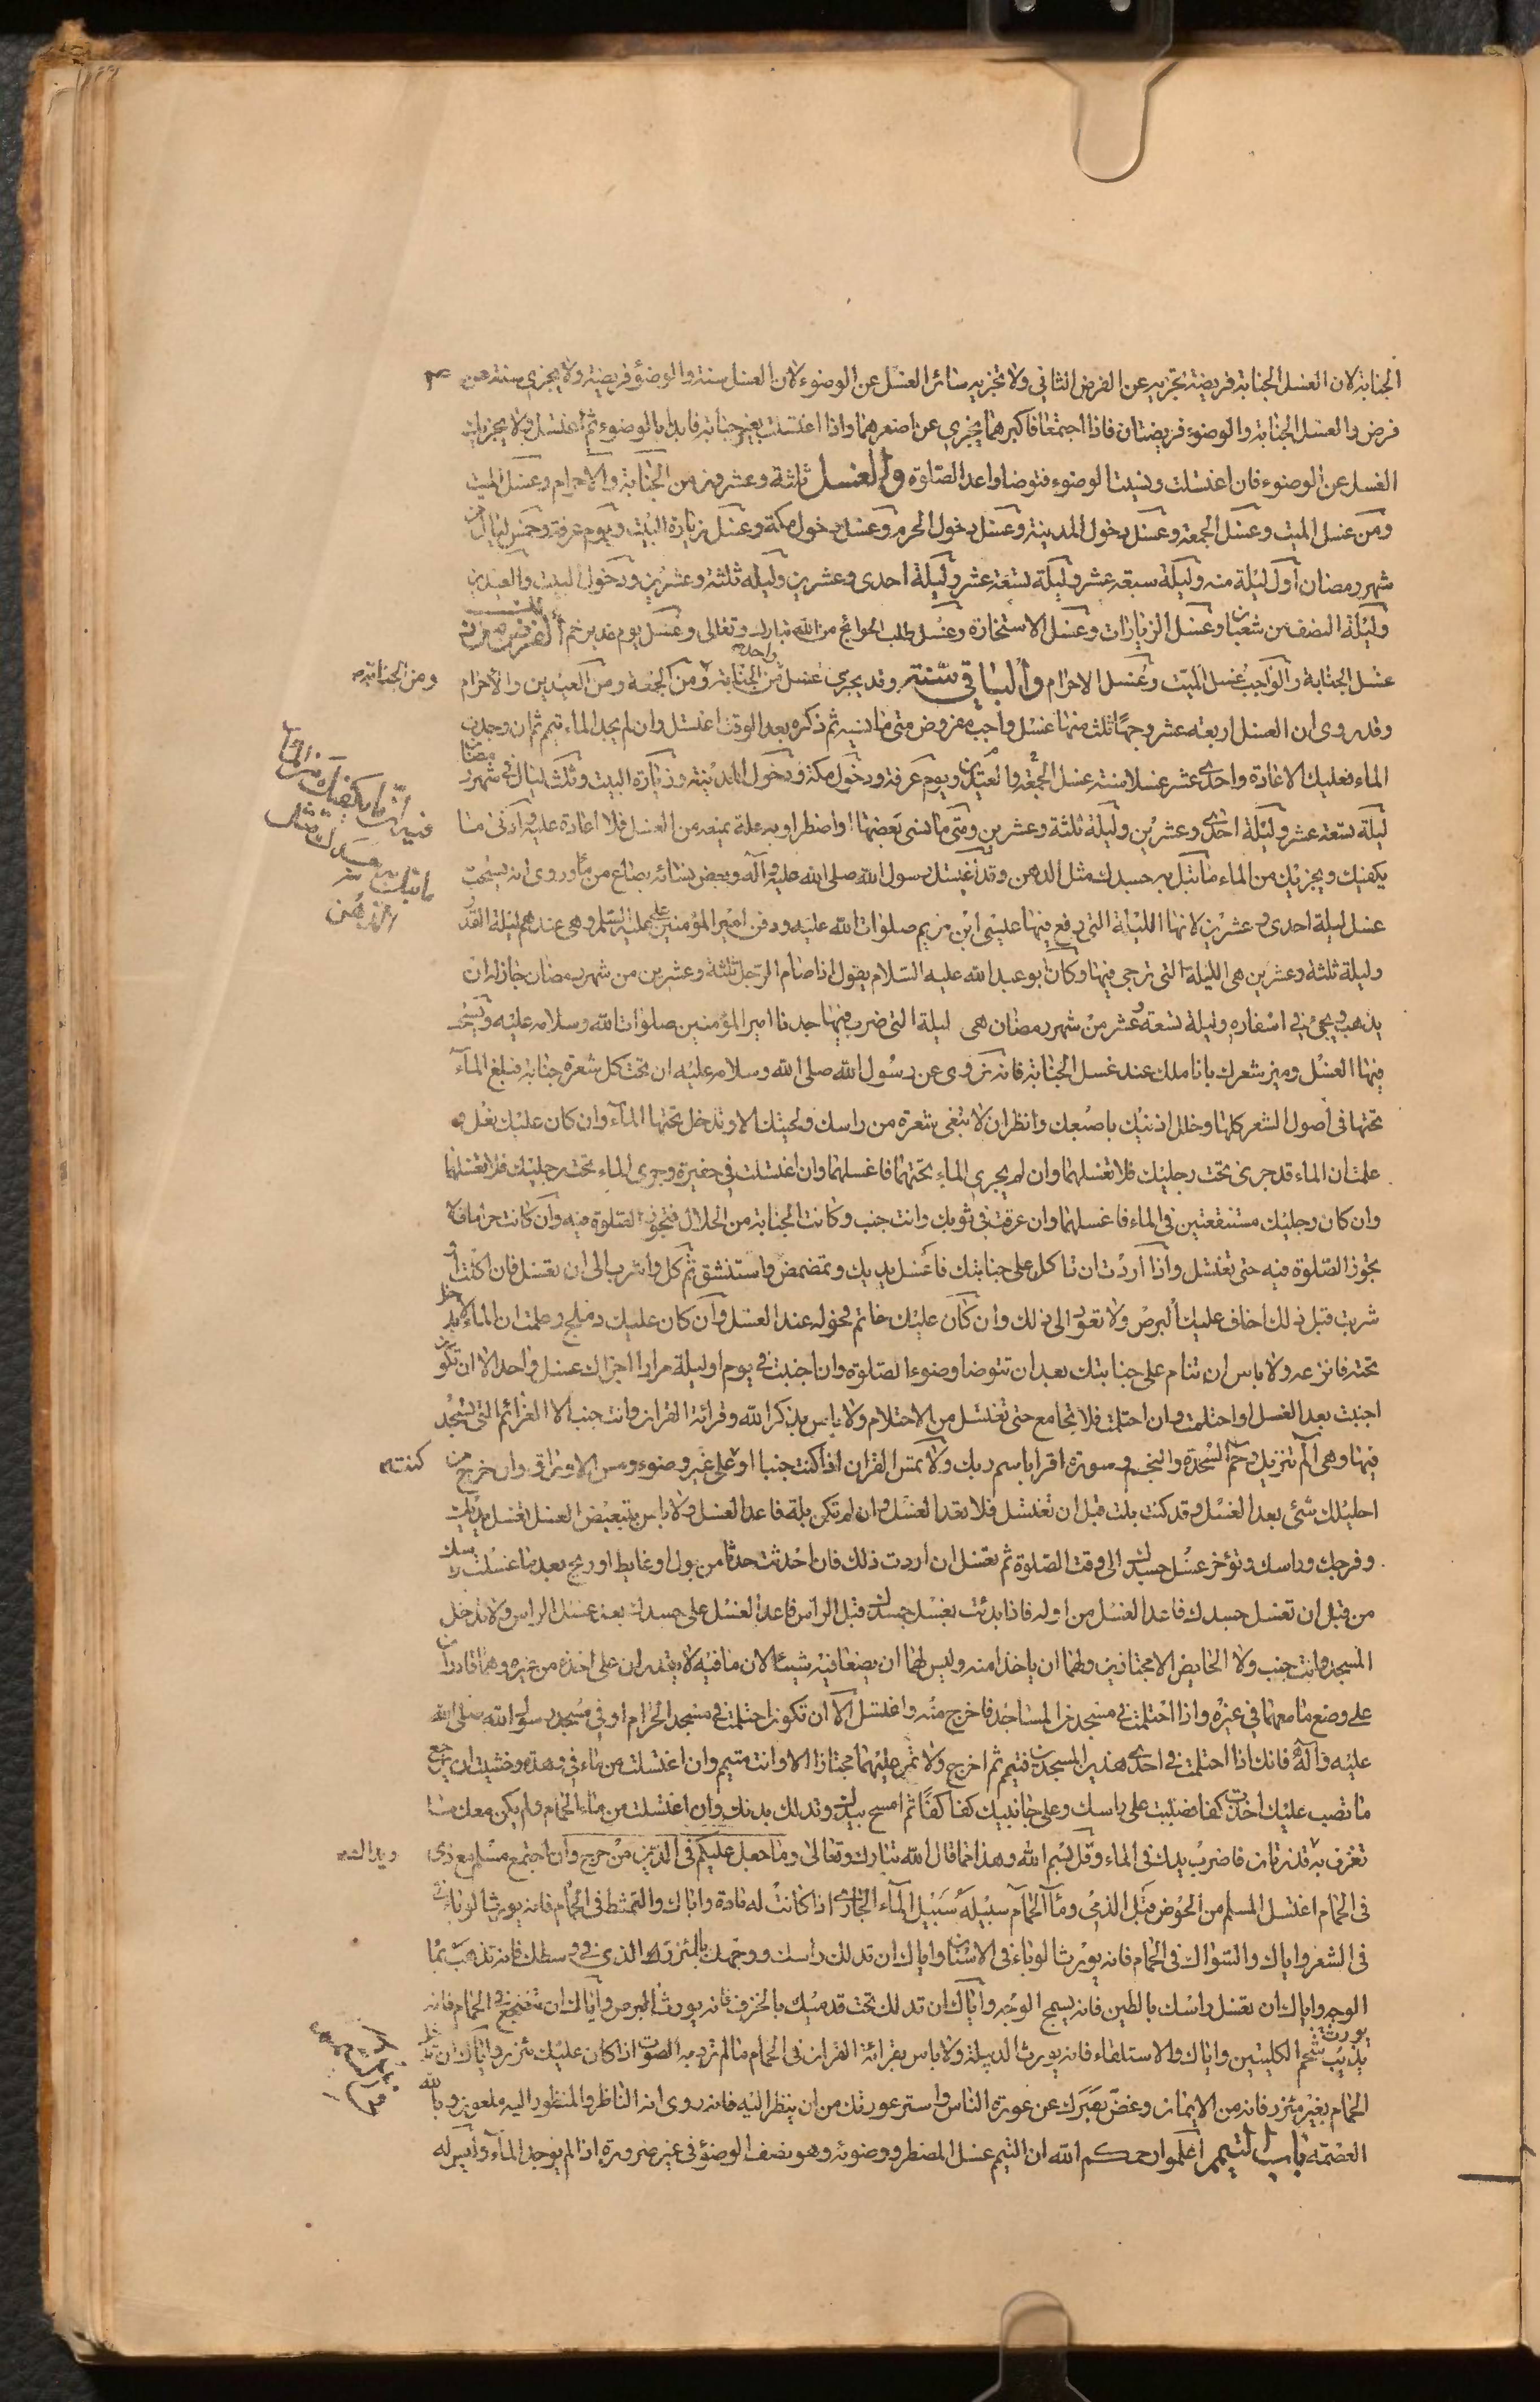 الجنابة لان الغسل الجنابة فريضة تجزيه عن الفرض الثاني ولا تجزيه سائر الغسل عن الوضوء لان الغسل سنة والوضوء فريضة ولا يجزي سنة عن
فرض والغسل الجنابة والوضوء فريضتان فاذا اجتمعا فاكبرهما يجزي عن اصغرهما واذا اغتسلت بغير جنابة فابدا بالوضوء ثم اغتسل ولا يجزيك
الغسل عن الوضوء فان اغتسلت ونسيت الوضوء فتوضا واعد الصلوة والغسل ثلثة وعشرون من الجنابة والاحرام وغسل الميت
ومن غسل الميت وغسل الجمعة وغسل دخول المدينة وغسل دخول الحرم وغسل دخول مكة وغسل زيارة البيت ويوم عرفة وخمس ليال من
شهر رمضان اول ليلة منه وليلة سبعة عشر وليلة تسعة عشر وليلة احدى وعشرين وليلة ثلثة وعشرين ودخول البيت والعيدين
وليلة النصف من شعبان وغسل الزيارات وغسل الاستخارة وغسل طلب الحوائج من الله تبارك وتعالى وغسل يوم غدير خم الفرض من ذلك
غسل الجنابة والواجب غسل الميت وغسل الاحرام والباقي سنة وقد يجزي غسل واحد من الجنابة ومن الجمعة ومن العيدين والاحرام
ومن الجنابة
وقد روى ان الغسل اربعة عشر وجها ثلث منها غسل واجب مفروض متى ما نسيه ثم ذكره بعد الوقت اغتسل وان لم يجد الماء تيمم ثم ان وجدت
الماء فعليك الاعادة واحدى عشر غسلا سنة غسل الجمعة والعيدين ويوم عرفة ودخول مكة ودخول المدينة وزيارة البيت وثلث ليال في شهر رمضان
ليلة تسعة عشر وليلة احدى وعشرين وليلة ثلثة وعشرين ومتى ما نسى بعضها او اضطر او به علة يمنعه من الغسل فلا اعادة عليه وادنى ما
يكفيك ويجزيك من الماء ما تبل به جسدك مثل الدهن وقد اغتسل رسول الله صلى الله عليه وآله وبعض نسائه بصاع من ماء وروى انه يستحب
غسل ليلة احدى وعشرين لانها الليلة التي رفع فيها عيسى ابن مريم صلوات الله عليه ودفن امير المؤمنين علي عليه السلم وهي عندهم ليلة القدر
وليلة ثلثة وعشرين هي الليلة التي ترجى فيها وكان ابو عبد الله عليه السلام يقول اذا صام الرجل ثلثة وعشرين من شهر رمضان جاز له ان
يذهب ويجئ في اسفاره وليلة تسعة وعشر من شهر رمضان هي ليلة التي ضرب فيها جدنا امير المؤمنين صلوات الله وسلامه عليه ويستحب
فيها الغسل وميز شعرك باناملك عند غسل الجنابة فانه نروى عن رسول الله صلى الله وسلامه عليه ان تحت كل شعرة جنابة فبلغ الماء
تحتها في اصول الشعر كلها وخلل اذنيك باصبعك وانظر ان لا تبقى شعرة من راسك ولحيتك الا وتدخل تحتها الماء وان كان عليك نعل و
علمت ان الماء قد جرى تحت رجليك فلا تغسلهما وان لم يجري الماء تحتهما فاغسلهما وان اغتسلت في حفيرة وجرى الماء تحت رجليك فلا تغسلهما
وان كان رجليك مستنقعتين في الماء فاغسلهما وان عرقت في ثوبك وانت جنب وكانت الجنابة من الحلال فتجوز الصلوة فيه وان كانت حراما فلا
تجوز الصلوة فيه حتى تغتسل واذا اردت ان تاكل على جنابتك فاغسل يديك وتمضمض واستنشق ثم كل واشرب الى ان تغتسل فان اكلت او
شربت قبل ذلك اخاف عليك البرص ولا تعود الى ذلك وان كان عليك خاتم فحوله عند الغسل وان كان عليك دملج وعلمت ان الماء لا يدخل
تحته فانزعه ولا باس ان تنام على جنابتك بعد ان تتوضا وضوء الصلوة وان اجنبت في يوم او ليلة مرارا اجزاك غسل واحد الا ان تكون
اجنبت بعد الغسل او احتلمت وان احتلمت فلا تجامع حتى تغتسل من الاحتلام ولا باس بذكر الله وقرائة القران وانت جنب الا العزائم التي تسجد
فيها وهي الم تنزيل وحم السجدة والنجم وسورة اقرا باسم ربك ولا تمس القران اذا كنت جنبا او على غير وضوء ومس الاوراق وان خرج من
احليلك شئ بعد الغسل وقد كنت بلت قبل ان تغتسل فلا تعد الغسل وان لم تكن بلة فاعد الغسل ولا باس بتبعيض الغسل تغسل يديك
وفرجك وراسك وتؤخر غسل جسدك الى وقت الصلوة ثم تغسل ان اردت ذلك فان احدثت حدثا من بول او غايط او ريح بعد ما غسلت راسك
من قبل ان تغسل جسدك فاعد الغسل من اوله فاذا بدئت بغسل جسدك قبل الراس فاعد الغسل على جسدك بعد غسل الراس ولا تدخل
المسجد وانت جنب ولا الحايض الا مجتازين ولهما ان ياخذا منه وليس لهما ان يضعا فيه شيئا لان ما فيه لا يقدران على اخذه من غيره وهما قادران
على وضع ما معهما في غيره واذا احتلمت في مسجد من المساجد فاخرج منه واغتسل الا ان تكون احتلمت في مسجد الحرام او في مسجد رسول الله صلى الله
عليه وآله فانك اذا احتلمت في احدى هذين المسجدين فتيمم ثم اخرج ولا تمر عليهما مجتازا الا وانت متيمم وان اغتسلت من ماء في وهدة وخشيت ان يرجع
ما تصب عليك اخذت كفا فصببت على راسك وعلى جانبيك كفا كفا ثم امسح بيدك وتدلك بدنك وان اغتسلت من ماء الحمام ولم يكن معك ما
تغرف به قذرتان فاضرب يدك في الماء وقل بسم الله وهذا مما قال الله تبارك وتعالى وما جعل عليكم في الدين من حرج وان اجتمع مسلم مع ذمي
ويداك
في الحمام اغتسل المسلم من الحوض قبل الذمي وماء الحمام سبيله سبيل الماء الجاري اذا كانت له مادة واياك والتمشط في الحمام فانه يورث الوباء
في الشعر واياك والسواك في الحمام فانه يورث الوباء في الاسنان واياك ان تدلك راسك ووجهك بالمئزر الذي في وسطك فانه تذهب بماء
الوجه واياك ان تغسل راسك بالطين فانه يسمج الوجه واياك ان تدلك تحت قدميك بالخزف فانه يورث البرص واياك ان تضطجع في الحمام فانه
يذيب شحم الكليتين واياك والاستلقاء فانه يورث الدبيلة ولا باس بقرائة القران في الحمام ما لم ترد به الصوت اذا كان عليك مئزر واياك ان تدخل
الحمام بغير مئزر فانه من الايمان وغض بصرك عن عورة الناس واستر عورتك من ان ينظر اليه فانه روى انه الناظر والمنظور اليه ملعون وبالله
العصمة باب التيمم اعلموا رحمكم الله ان التيمم غسل المضطر ووضوئه وهو نصف الوضوء في غير ضرورة اذا لم يوجد الماء وليس له